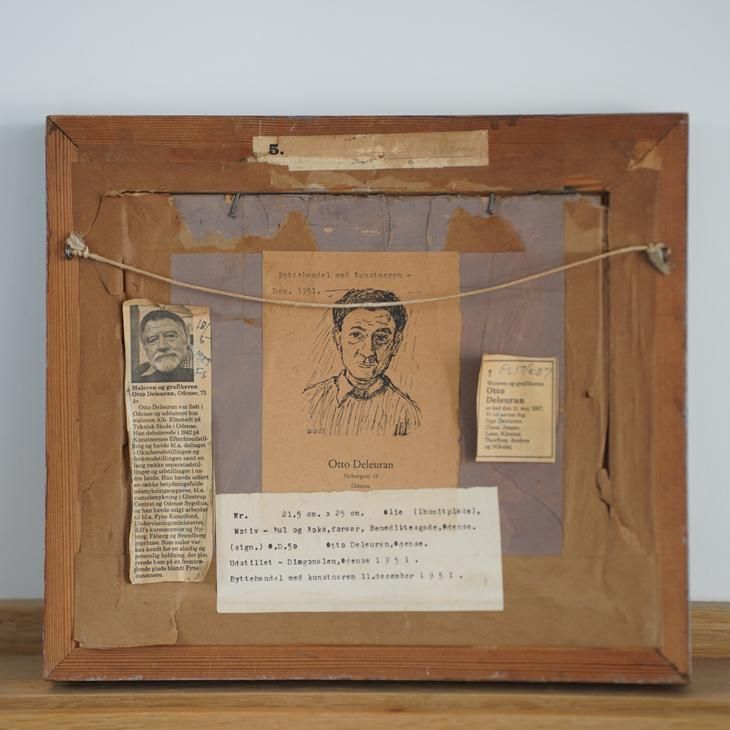 5.
Byttehandel med Kunstneren -
Dec. 1951.
Otto Deleuran
Nyborgvej 12
Odense
Maleren og grafikeren
Otto Deleuran, Odense, 73
år.
Otto Deleuran var født i
Odense og uddannet hos
maleren Alb. Elmstedt på
Teknisk Skole i Odense.
Han debuterede i 1942 på
Kunstnernes Efterårsudstil-
ling og havde bl.a. deltaget
i Oktoberudstillingen og
forårsudstillingen samt en
lang række separatudstil-
linger og udstillinger i an-
dre lande. Han havde udført
en række betydningsfulde
udsmykningsopgaver, bl.a.
rumudsmykning i Glostrup
Centret og Odense Sygehus,
og han havde solgt arbejder
til bl.a. Fyns Kunstfond,
Undervisningsministeriet,
B.D's kursuscenter og Ny-
borg, Fåborg og Svendborg
sygehuse. Som maler var
han kendt for en alsidig og
personlig holdning, der pla-
cerede ham på en fremtræ-
dende plads blandt Fyns
kunstnere.
Maleren og grafikeren
Otto
Deleuran
er død den 11. maj 1987.
Vi vil savne dig.
Inga Deleuran,
Claus, Jesper,
Lone, Kirsten,
Thorfinn, Anders
og Nikolaj
Nr. 21,5 cm. x 25 cm. Olie (Ibonitplade),
Motiv - Kul og Koks, forsør, Benediktsgade, Odense.
(sign.) O.D.50 Otto Deleuran, Odense.
Udstillet - Diagonalen, Odense 1951.
Byttehandel med kunstneren 11.december 1951.